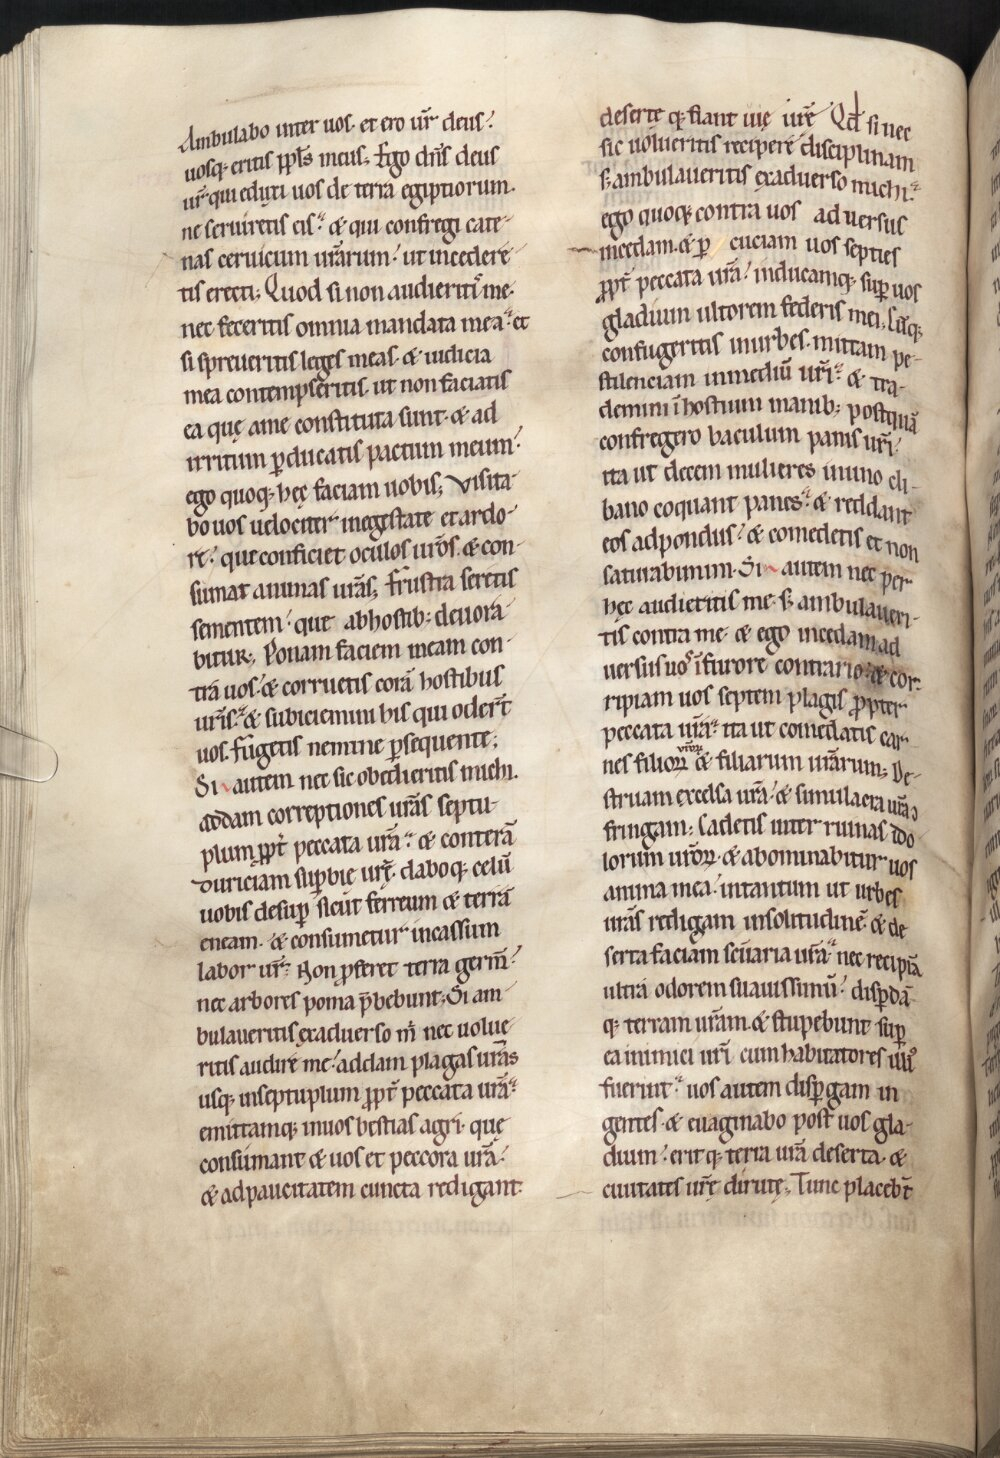 Ambulabo inter uos. et ero ur̃ deus.᷄
uosq; eritis ppl̃s meus; Ego dñs deus
ur̃ qui eduxi uos de terra egiptiorum.
ne seruiretis eis. & qui confregi cate-
nas ceruicum ur̃arum. ut incedere-
tis erecti; Quod si non audieritis me.
nec feceritis omnia mandata mea. et
si spreueritis leges meas. & iudicia
mea contempseritis. ut non faciatis
ea quę a me constituta sunt. & ad
irritum ꝑducatis pactum meum.
ego quoq; hęc faciam uobis; Visita-
bo uos uelociter in egestate et ardo-
re. qui conficiet oculos ur̃os. & con-
sumat animas ur̃as; Frustra seretis
sementem. que ab hostib; deuora-
bitur; Ponam faciem meam con-
trã uos. & corruetis corã hostibus
ur̃is. & subiciemini his qui oder̃t
uos. fugietis nemine ꝑsequente;
Si autem nec sic obedieritis michi.
addam correptiones ur̃as septu-
plum ꝓpt̃ peccata ur̃a. & conterã
duriciam suꝑbie ur̃ę. daboq; celũ
uobis desuꝑ sicut ferreum & terrã
eneam. & consumetur incassum
labor ur̃. Non ꝓferet terra germ̃.
nec arbores poma p̃bebunt; Si am-
bulaueritis exaduerso m̃ nec uolue-
ritis audire me. addam plagas ur̃as
usq; in septuplum ꝓpt̃ peccata ur̃a.
emittamq; in uos bestias agri. quę
consumant & uos et peccora ur̃a.
& ad paucitatem cuncta redigant.
deserteq; fiant uię ur̃ę Qđ si nec
sic uolueritis recipere disciplinam
s; ambulaueritis exaduerso michi.
ego quoq; contra uos aduersus
incedam. & ꝑ cuciam uos septies
ꝓpt̃ peccata ur̃a. inducamq; suꝑ uos
gladium ultorem federis mei. Cũq;
confugeritis in urbes. mittam pe-
stilenciam in mediũ ur̃i. & tra-
demini ĩ hostium manib; postquã
confregero baculum panis ur̃i.
ita ut decem mulieres in uno cli-
bano coquant panes. & reddant
eos ad pondus. & comedetis et non
saturabimini. Si autem nec per
hęc audieritis me. s; ambulaueri-
tis contra me. & ego incedam ad
uersus uos ĩ furore contrario. & cor-
ripiam uos septem plagis ꝓpter
peccata ur̃a. ita ut comedatis car-
nes filioꝝ ur̃oꝝ & filiarum ur̃arum; De-
struam excelsa ur̃a. & simulacra ur̃a 9
fringam; Cadetis inter ruinas ido
lorum ur̃oꝝ. & abominabitur uos
anima mea. in tantum ut urbes
ur̃as redigam in solitudinẽ. & de
serta faciam sc̃uaria ur̃a. nec recipiã
ultra odorem suauissimũ. disꝑdã-
q; terram ur̃am. & stupebunt suꝑ
ea inimici ur̃i cum habitatores illiꝰ
fuerint. uos autem disꝑgam in
gentes. & euaginabo post uos gla-
dium. eritq; terra ur̃a deserta. &
ciuitates ur̃ę dirutę; Tunc placeb̃t